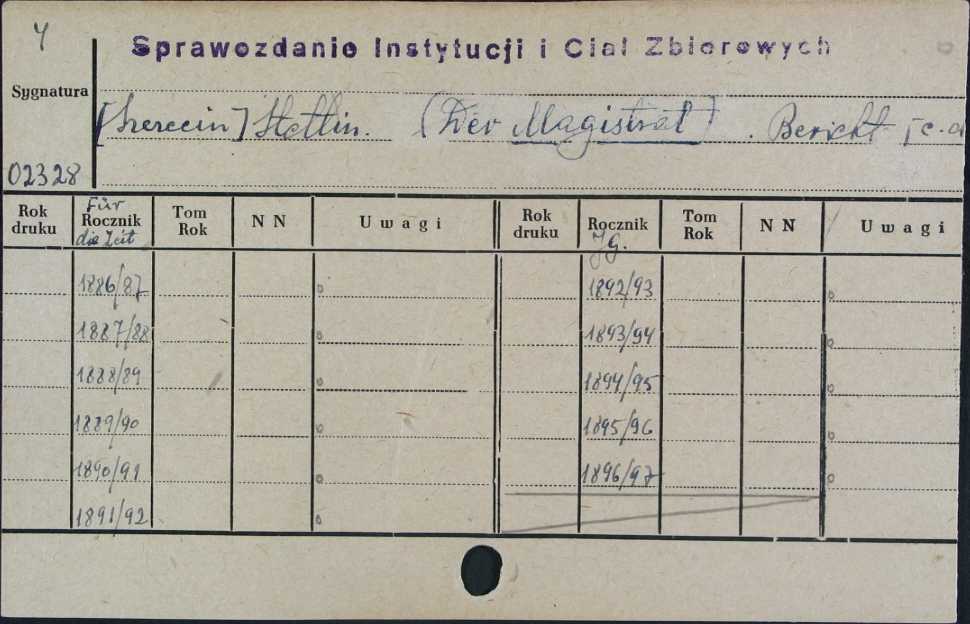 4
Sprawozdanie Instytucji i Ciał Zbiorowych
Sygnatura
[Szczecin] Stettin. (Der Magistrat). Bericht [c.d
02328
Rok druku
Für
Rocznik
die Zeit
Tom Rok
N N
Uwagi
Rok druku
Rocznik
Jg.
Tom Rok
N N
Uwagi
1886/87
1892/93
1887/88
1893/94
1888/89
1894/95
1889/90
1895/96
1890/91
1896/97
1891/92